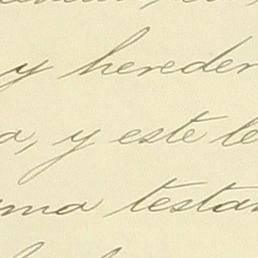 y hereder
a, y este te
ma testam